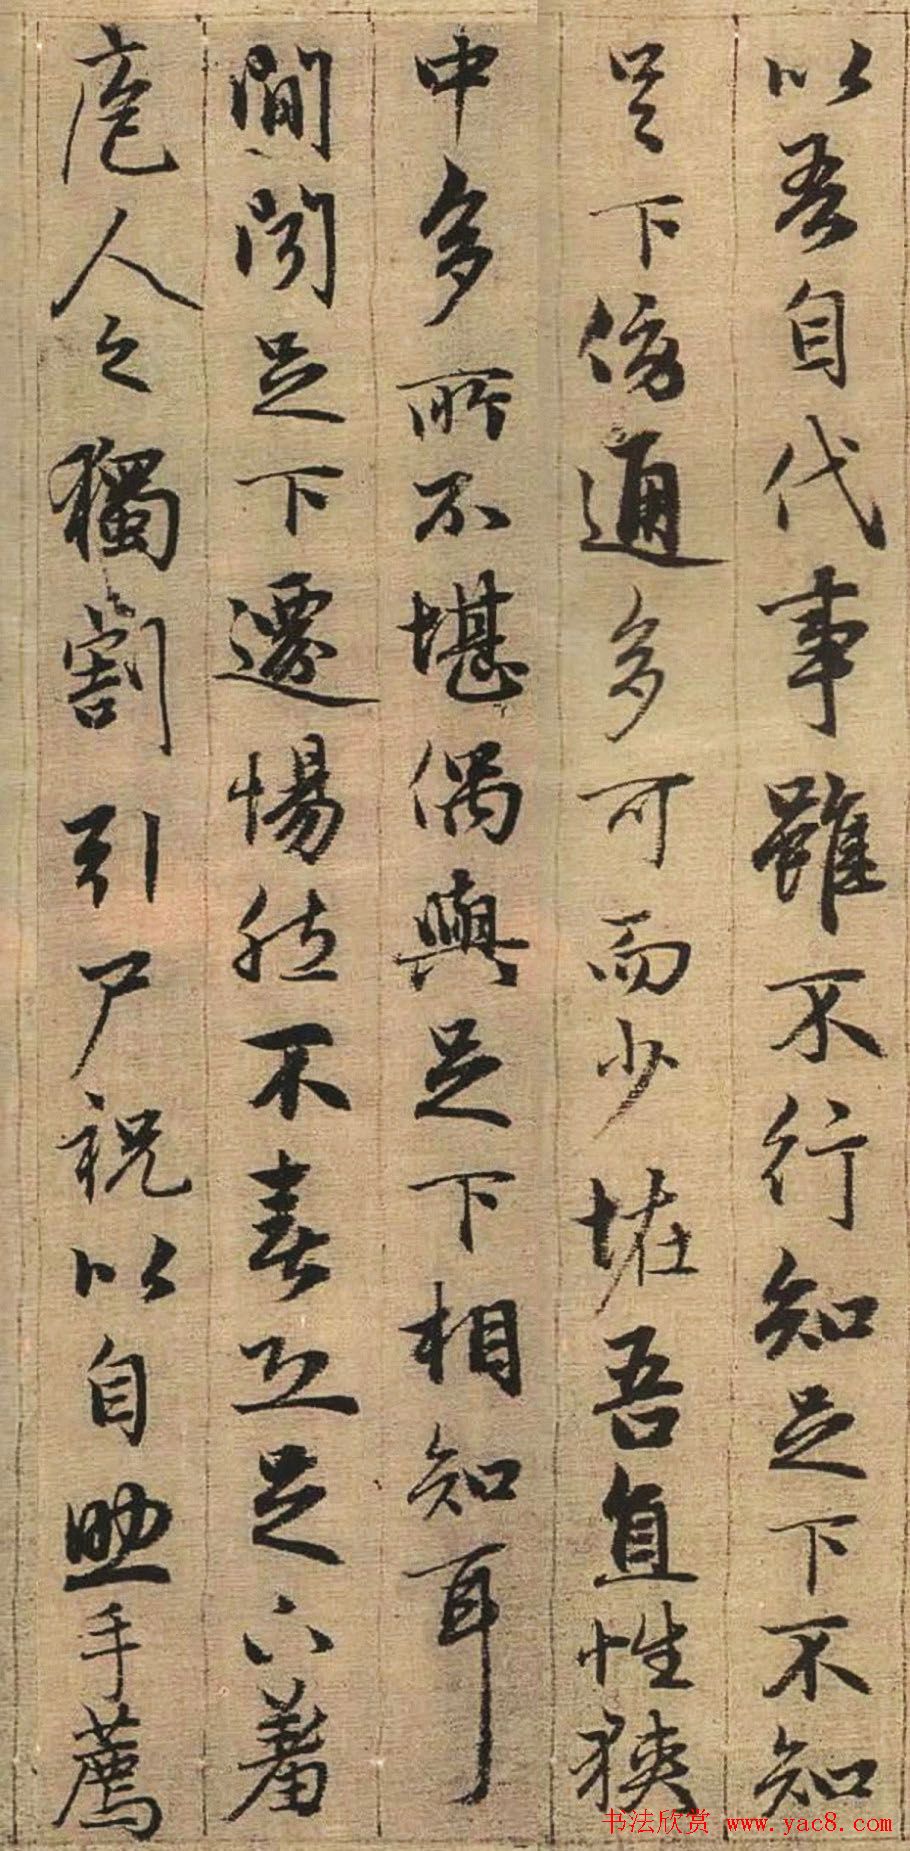 以吾自代事雖不行知足下不知
足下傍通多可而少怪吾直性狹
中多所不堪偶與足下相知耳
間聞足下遷惕然不喜恐足下羞
庖人之獨割引尸祝以自助手薦
书法欣赏 www.yac8.com